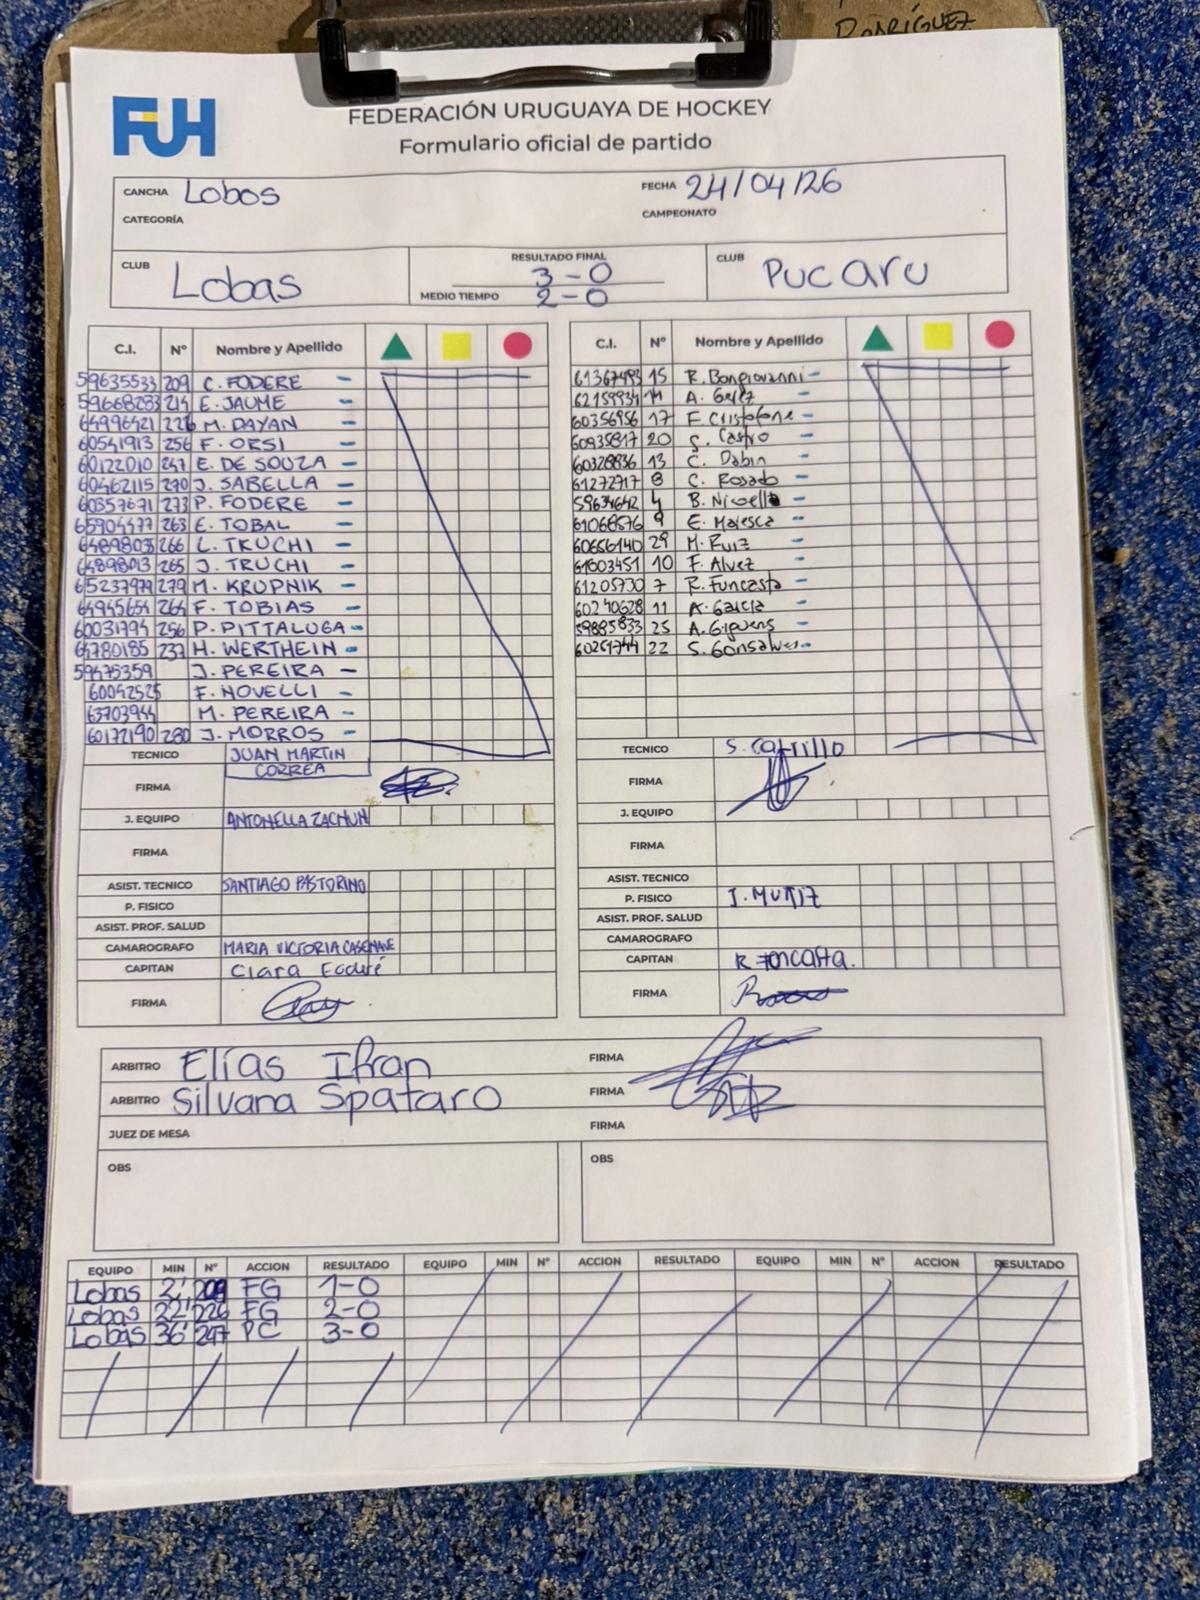 RODRÍGUEZ
FUH
FEDERACIÓN URUGUAYA DE HOCKEY
Formulario oficial de partido
CANCHA Lobos FECHA 24/04/26
CATEGORÍA CAMPEONATO
CLUB Lobas RESULTADO FINAL 3-0 CLUB Pucaru
MEDIO TIEMPO 2-0
C.I. Nº Nombre y Apellido C.I. Nº Nombre y Apellido
59635533 209 C. FODERE - 61367493 15 R. Bongiovanni -
59668283 214 E. JAUME - 62159934 14 A. -
64996421 226 M. DAYAN - 60356956 17 F. Cristofone -
60541913 256 F. ORSI - 60935817 20 S. Castro -
60122010 247 E. DE SOUZA - 60328836 13 C. Dabin -
60462115 270 J. SABELLA - 61272717 8 C. Rosado -
60357671 273 P. FODERE - 59634642 4 B. -
65904477 263 E. TOBAL - 61068576 9 E. Malesca -
64898035 266 L. TRUCHI - 60656140 29 M. Ruiz -
64898013 265 J. TRUCHI - 61603451 10 F. Alvez -
65237979 279 M. KRUPNIK - 61205730 7 R. Funcasta -
64945654 264 F. TOBIAS - 60240628 11 A. Garcia -
60031794 256 P. PITTALUGA - 59885833 25 A. Giguens -
64780185 237 H. WERTHEIN - 60261744 22 S. Gonsalves -
59475359 J. PEREIRA -
60042525 F. NOVELLI -
63703944 M. PEREIRA -
60172190 280 J. MORROS -
TECNICO JUAN MARTIN CORREA TECNICO S. Carrillo
FIRMA FIRMA
J. EQUIPO ANTONELLA ZACHUN J. EQUIPO
FIRMA FIRMA
ASIST. TECNICO SANTIAGO PASTORINO ASIST. TECNICO
P. FISICO P. FISICO I. MUÑIZ
ASIST. PROF. SALUD ASIST. PROF. SALUD
CAMAROGRAFO MARIA VICTORIA CASENAVE CAMAROGRAFO
CAPITAN Clara Foderé CAPITAN R Foncasta.
FIRMA FIRMA
ARBITRO Elías Ifran FIRMA
ARBITRO Silvana Spataro FIRMA
JUEZ DE MESA FIRMA
OBS OBS
EQUIPO MIN Nº ACCION RESULTADO EQUIPO MIN Nº ACCION RESULTADO EQUIPO MIN Nº ACCION RESULTADO
Lobas 2' 209 FG 1-0
Lobas 22' 226 FG 2-0
Lobas 36' 247 PC 3-0